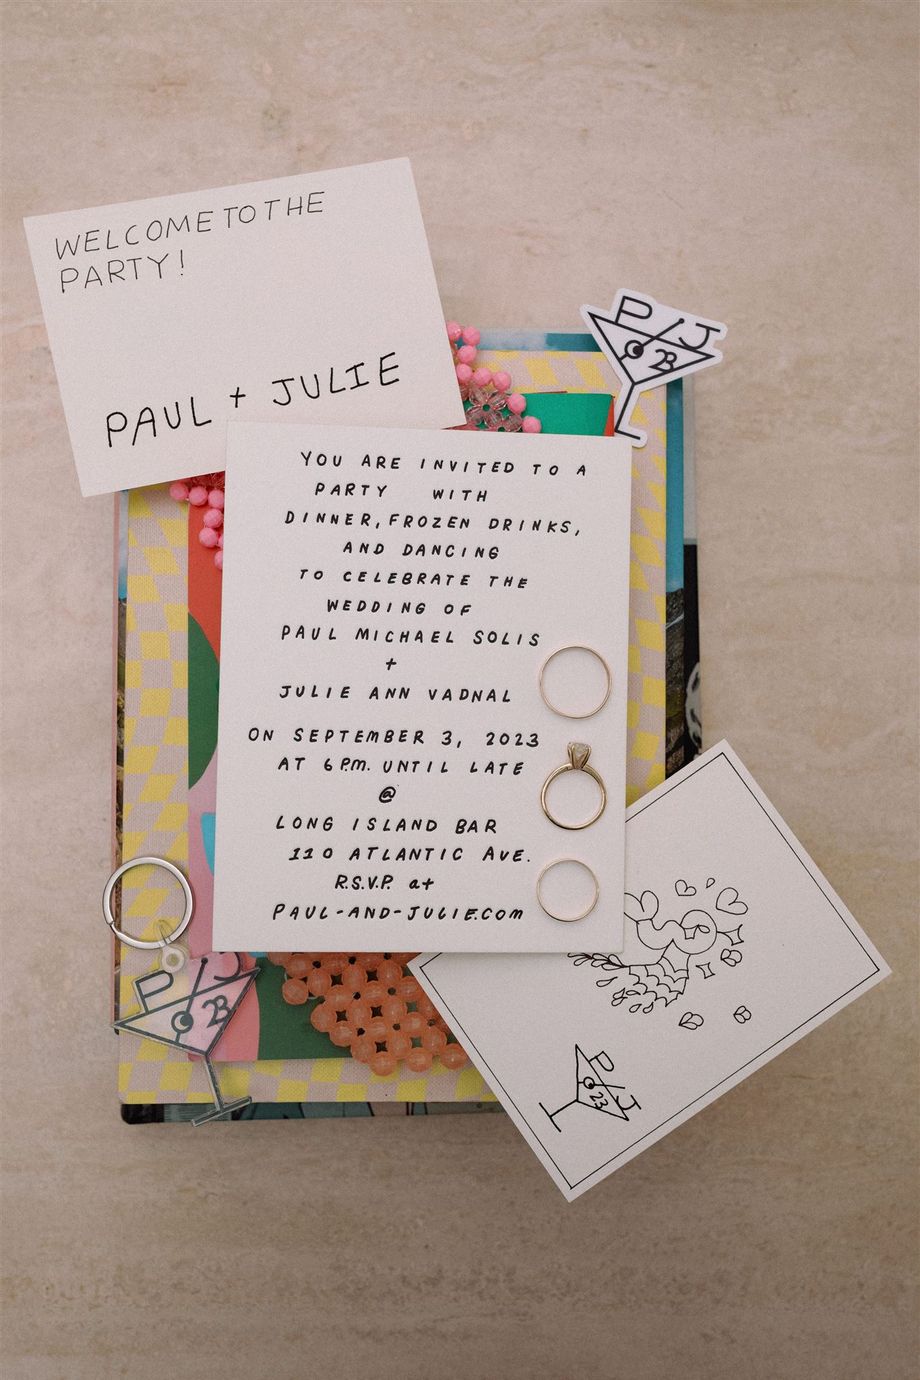 WELCOME TO THE
PARTY!
PAUL + JULIE
P J
23
YOU ARE INVITED TO A
PARTY WITH
DINNER, FROZEN DRINKS,
AND DANCING
TO CELEBRATE THE
WEDDING OF
PAUL MICHAEL SOLIS
+
JULIE ANN VADNAL
ON SEPTEMBER 3, 2023
AT 6 P.M. UNTIL LATE
@
LONG ISLAND BAR
110 ATLANTIC AVE.
R.S.V.P. at
PAUL-AND-JULIE.COM
P J
23
P J
23